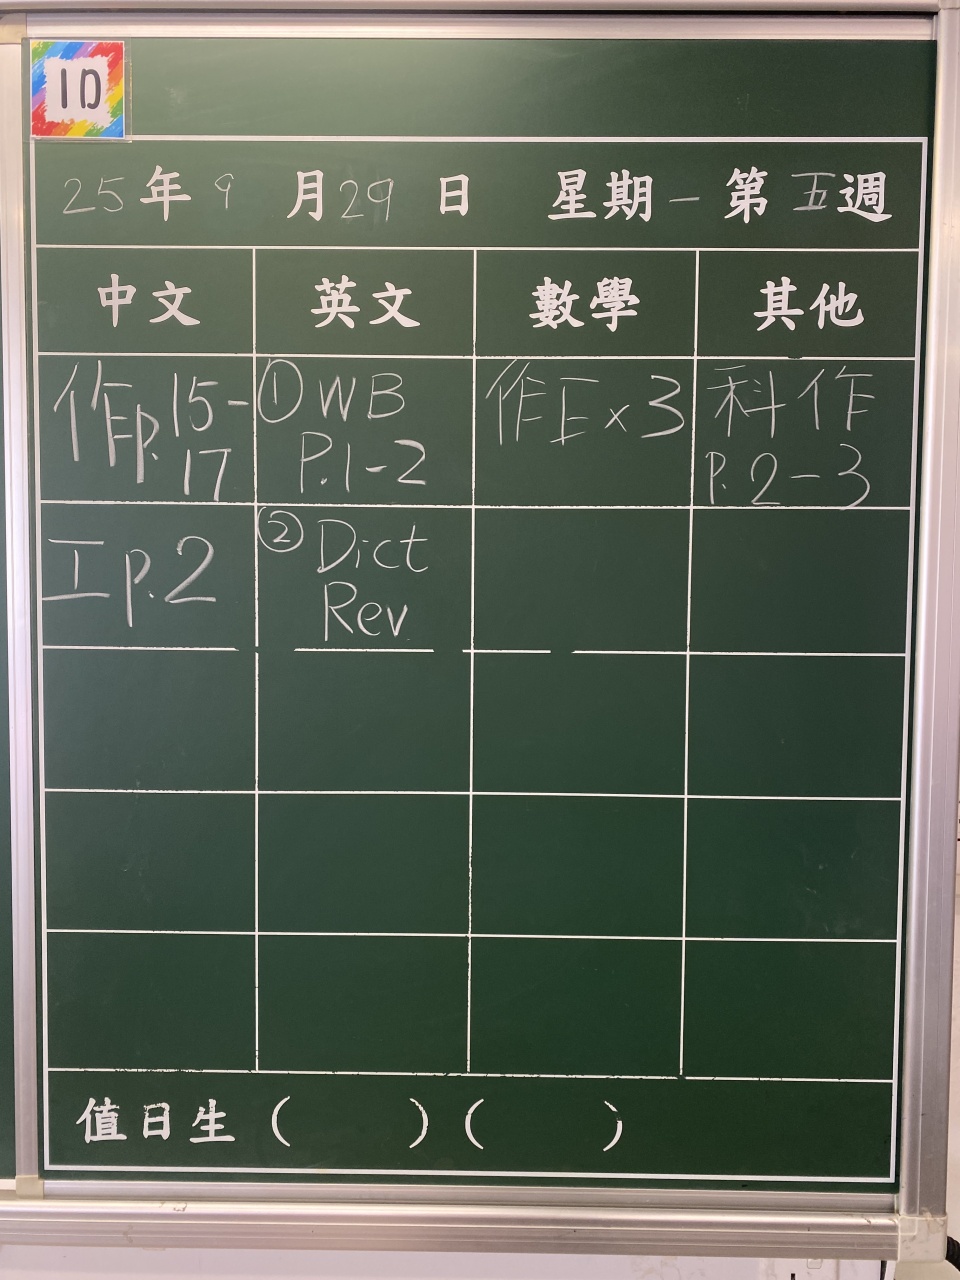 1D
25年9月29日 星期一 第五週
中文 英文 數學 其他
作P.15-
17
①WB
P.1-2
作工×3
科作
P.2-3
工P.2
②Dict
Rev.
值日生( )( )